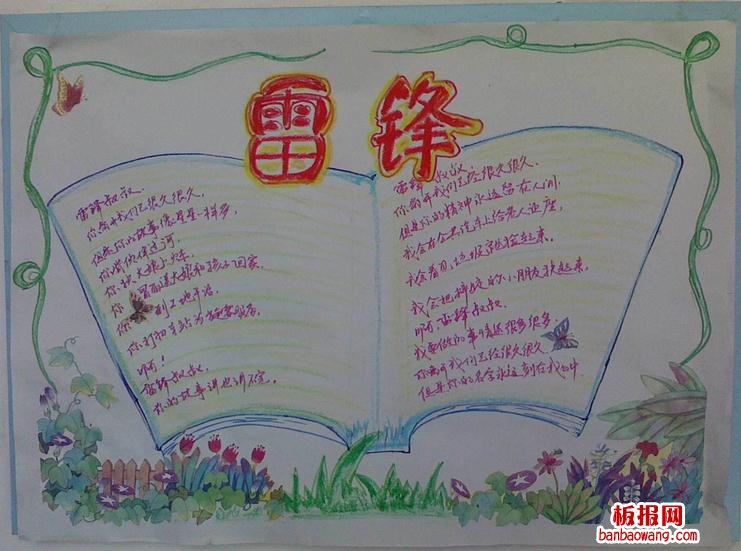 雷锋
雷锋叔叔.
你离开我们已很久很久,
但是你的故事像星星一样多,
你带伙伴过河.
你扶大娘上火车.
你 冒雨送大娘和孩子回家.
你 到工地干活.
你打扫车站为旅客服务.
啊!
雷锋叔叔,
你的故事讲也讲不完.
雷锋叔叔.
你离开我们已经很久很久.
但是你的精神永远留在人间.
我会在公共汽车上给老人让座,
我会看见垃圾就捡起来.
我会把摔跤的小朋友扶起来,
啊,雷锋叔叔.
我要做的事情还很多很多.
你离开我们已经很久很久.
但是你的名字永远刻在我心中
板报网
banbaowang.com